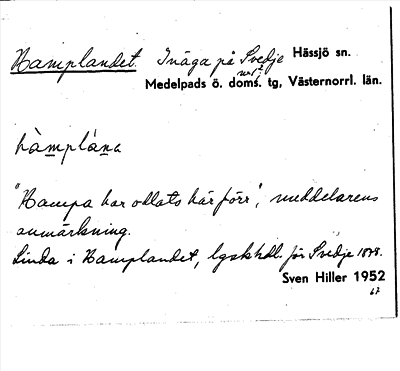 Hamplandet. Inäga på Svedje nr 2 Hässjö sn.
Medelpads ö. doms. tg, Västernorrl. län.
hàmplána
"Hampa har odlats här förr", meddelarens
anmärkning.
Linda i Hamplandet, lgskhdl. för Svedje 1878.
Sven Hiller 1952
67